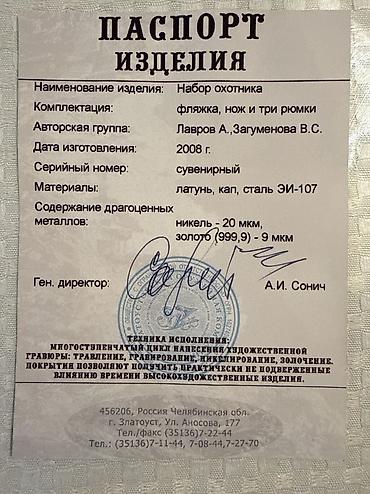 ПАСПОРТ
ИЗДЕЛИЯ
Наименование изделия: Набор охотника
Комплектация: фляжка, нож и три рюмки
Авторская группа: Лавров А.,Загуменова В.С.
Дата изготовления: 2008 г.
Серийный номер: сувенирный
Материалы: латунь, кап, сталь ЭИ-107
Содержание драгоценных
металлов: никель - 20 мкм,
золото (999,9) - 9 мкм
Ген. директор: А.И. Сонич
ТЕХНИКА ИСПОЛНЕНИЯ:
МНОГОСТУПЕНЧАТЫЙ ЦИКЛ НАНЕСЕНИЯ ХУДОЖЕСТВЕННОЙ
ГРАВЮРЫ: ТРАВЛЕНИЕ, ГРАВИРОВАНИЕ, НИКЕЛИРОВАНИЕ, ЗОЛОЧЕНИЕ.
ПОКРЫТИЯ ПОЗВОЛЯЮТ ПОЛУЧИТЬ ПРАКТИЧЕСКИ НЕ ПОДВЕРЖЕННЫЕ
ВЛИЯНИЮ ВРЕМЕНИ ВЫСОКОХУДОЖЕСТВЕННЫЕ ИЗДЕЛИЯ.
456206, Россия Челябинская обл.
г. Златоуст, Ул. Аносова, 177
Тел./факс (35136)7-22-44
Тел.: (35136)7-11-44, 7-08-44,7-27-70